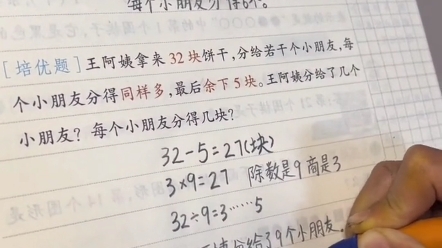 每个小朋友分得6个。
[培优题]王阿姨拿来32块饼干,分给若干个小朋友,每
个小朋友分得同样多,最后余下5块。王阿姨分给了几个
小朋友?每个小朋友分得几块?
32-5=27(块)
3×9=27 除数是9商是3
32÷9=3……5
分给了9个小朋友,